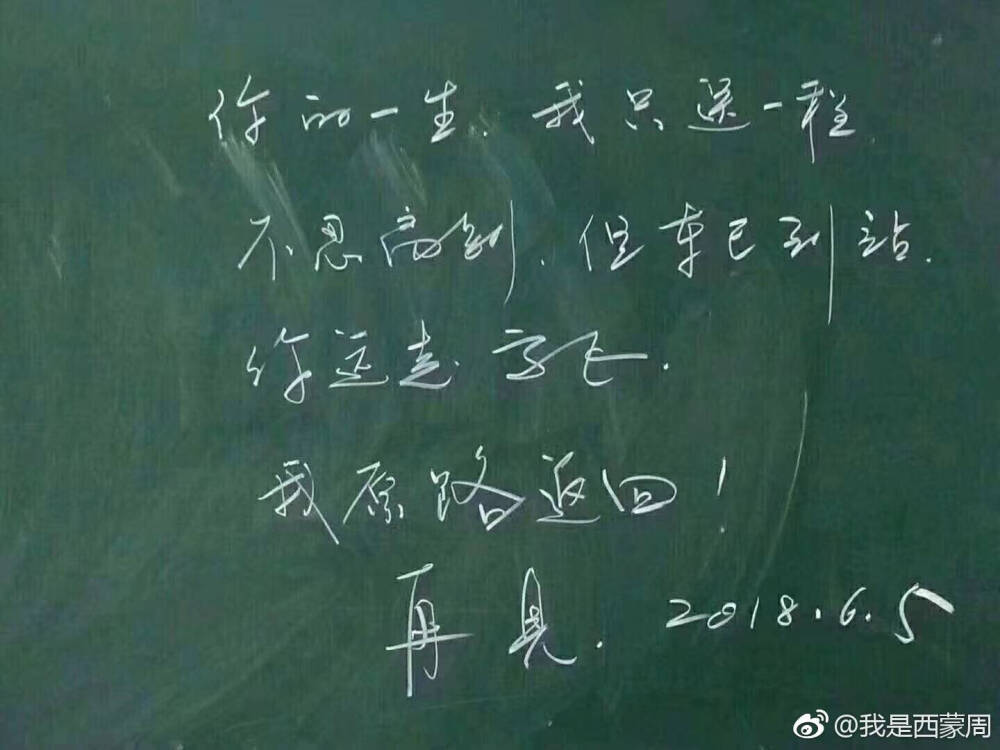 你的一生，我只送一程
不忍离别，但车已到站．
你远走高飞．
我原路返回！
再见．2018.6.5
@我是西蒙周